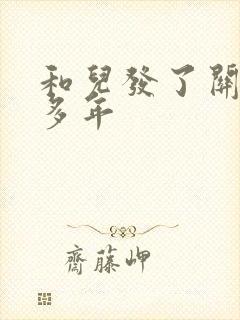 和兒發了關
多年
齋藤岬